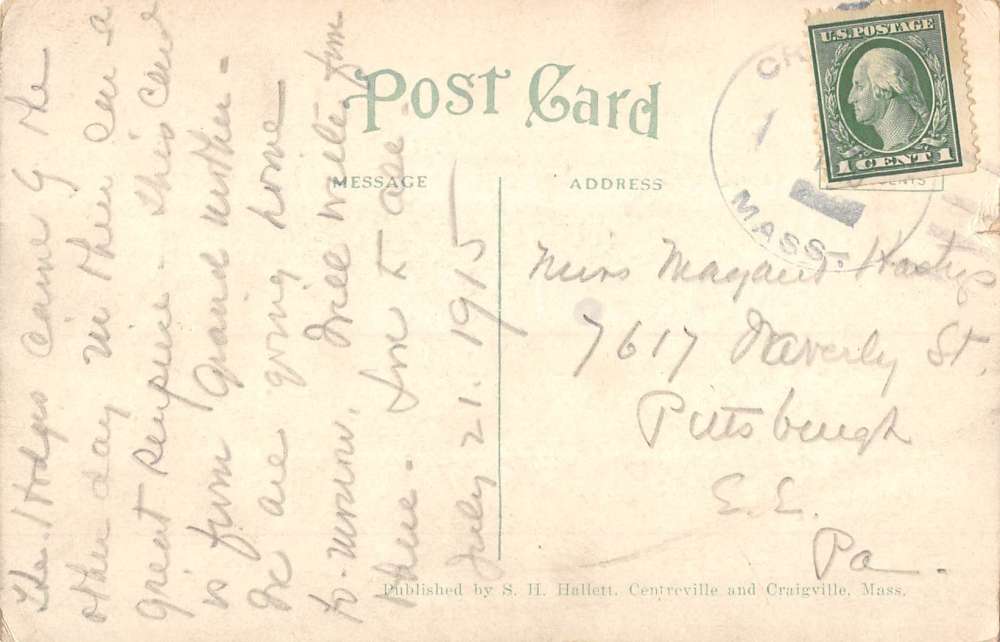 Post Card
MESSAGE
ADDRESS
U.S. POSTAGE
1 CENT 1
MASS.
The Hodges came the
other day in their car a
great surprise - This card
is from Grand mother -
We are going home
to-morrow. Will write from
there - love to all
July 21. 1915
Miss Margaret
7617 Waverly St.
Pittsburgh
E. E.
Pa.
Published by S. H. Hallett, Centreville and Craigville, Mass.